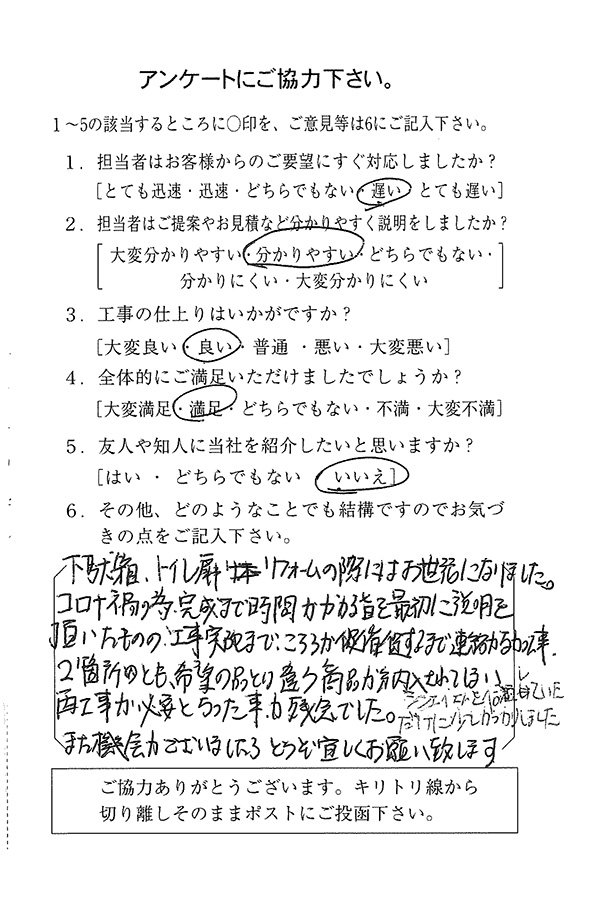 アンケートにご協力下さい。
1〜5の該当するところに〇印を、ご意見等は6にご記入下さい。
1．担当者はお客様からのご要望にすぐ対応しましたか？
[とても迅速・迅速・どちらでもない・遅い・とても遅い]
2．担当者はご提案やお見積など分かりやすく説明をしましたか？
[大変分かりやすい・分かりやすい・どちらでもない・
分かりにくい・大変分かりにくい]
3．工事の仕上りはいかがですか？
[大変良い・良い・普通 ・悪い・大変悪い]
4．全体的にご満足いただけましたでしょうか？
[大変満足・満足・どちらでもない・不満・大変不満]
5．友人や知人に当社を紹介したいと思いますか？
[はい ・ どちらでもない ・ いいえ]
6．その他、どのようなことでも結構ですのでお気づ
きの点をご記入下さい。
下駄箱、トイレ扉 リフォームの際にはお世話になりました。
コロナ禍の為、完成まで時間がかかる旨を最初に説明を
頂いたものの、工事実施まで、こちらから催促するまで連絡がない事、
2箇所とも、希望の品と違う商品が納入されてしまい
再工事が必要となった事が残念でした。
だけに少しがっかりしました
また機会がございましたら どうぞ宜しくお願い致します
ご協力ありがとうございます。キリトリ線から
切り離しそのままポストにご投函下さい。